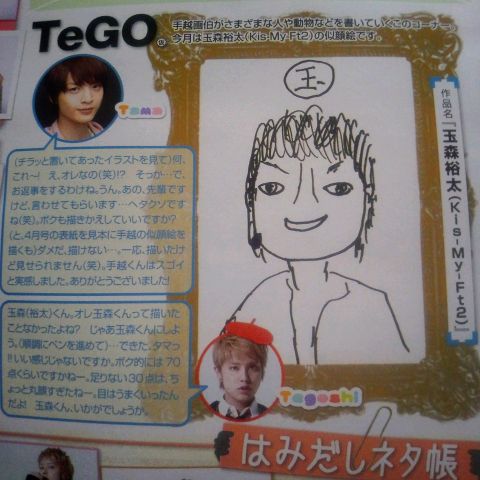 TeGO
手越画伯がさまざまな人や動物などを書いていくこのコーナー。
今月は玉森裕太(Kis-My-Ft2)の似顔絵です。
Tama
玉
作品名『玉森裕太(Kis-My-Ft2)』
(チラッと置いてあったイラストを見て)何、
これ〜! え、オレなの(笑)!? そっか…で、
お返事をするわけね。うん。あの、先輩です
けど、言わせてもらいます…ヘタクソです
ね(笑)。ボクも描きかえしていいですか?
(と、4月号の表紙を見本に手越の似顔絵を
描くも)ダメだ、描けない…。一応、描いたけ
ど見せられません(笑)。手越くんはスゴイ
と実感しました。ありがとうございました!
玉森(裕太)くん。オレ玉森くんって描いた
ことなかったよね? じゃあ玉森くんにしよ
う。(順調にペンを進めて)…できた、タマっ
!! いい感じじゃないですか。ボク的には70
点くらいですかねー。足りない30点は、ち
ょっと丸顔すぎたねー。目はうまくいったん
だよ! 玉森くん、いかがでしょうか。
Tegoshi
はみだしネタ帳